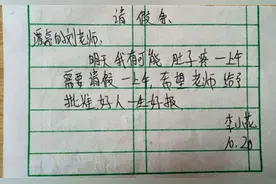 请假条
漂亮的刘老师:
明天我有可能 肚子疼一上午
需要请假一上午,希望老师给予
批准,好人一生好报.
李小花
10.20